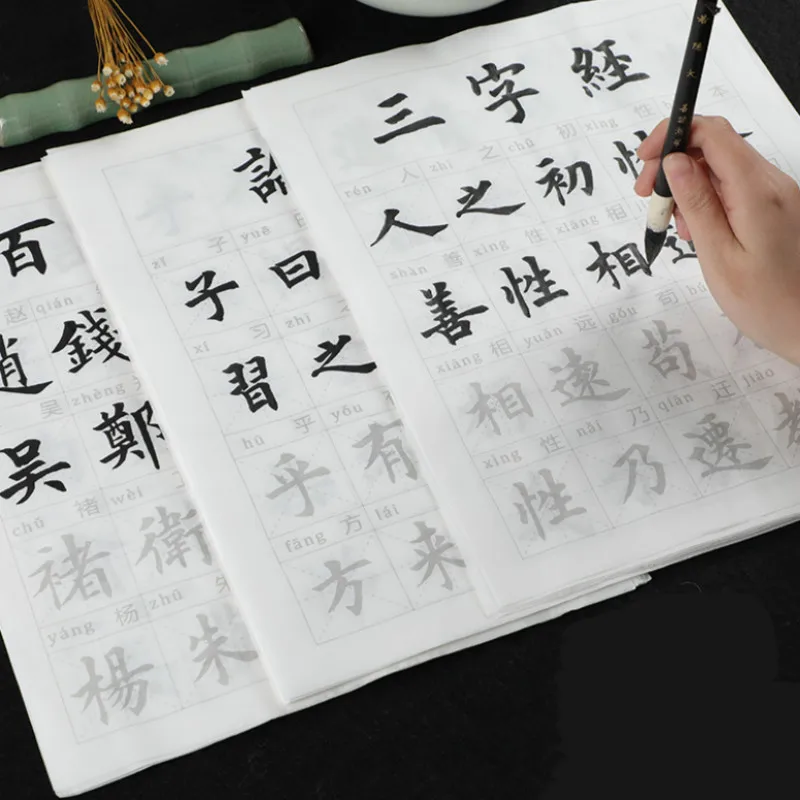 百
赵 qián
趙 錢
吴 zhèng
吳 鄭
chǔ 褚 wèi
褚 衛
yáng 杨 zhū
楊 朱
論
zǐ 子 yuē
子 曰
xí 习 zhī
習 之
hū 乎 yǒu
乎 有
fāng 方 lái
方 來
三 字 經
rén 人 zhī 之 chū 初 xìng 性 本
人 之 初 性
shàn 善 xìng 性 xiāng 相
善 性 相
xiāng 相 yuǎn 远 gǒu 苟
相 遠 苟
xìng 性 nǎi 乃 qiān 迁 jiào
性 乃 遷 教